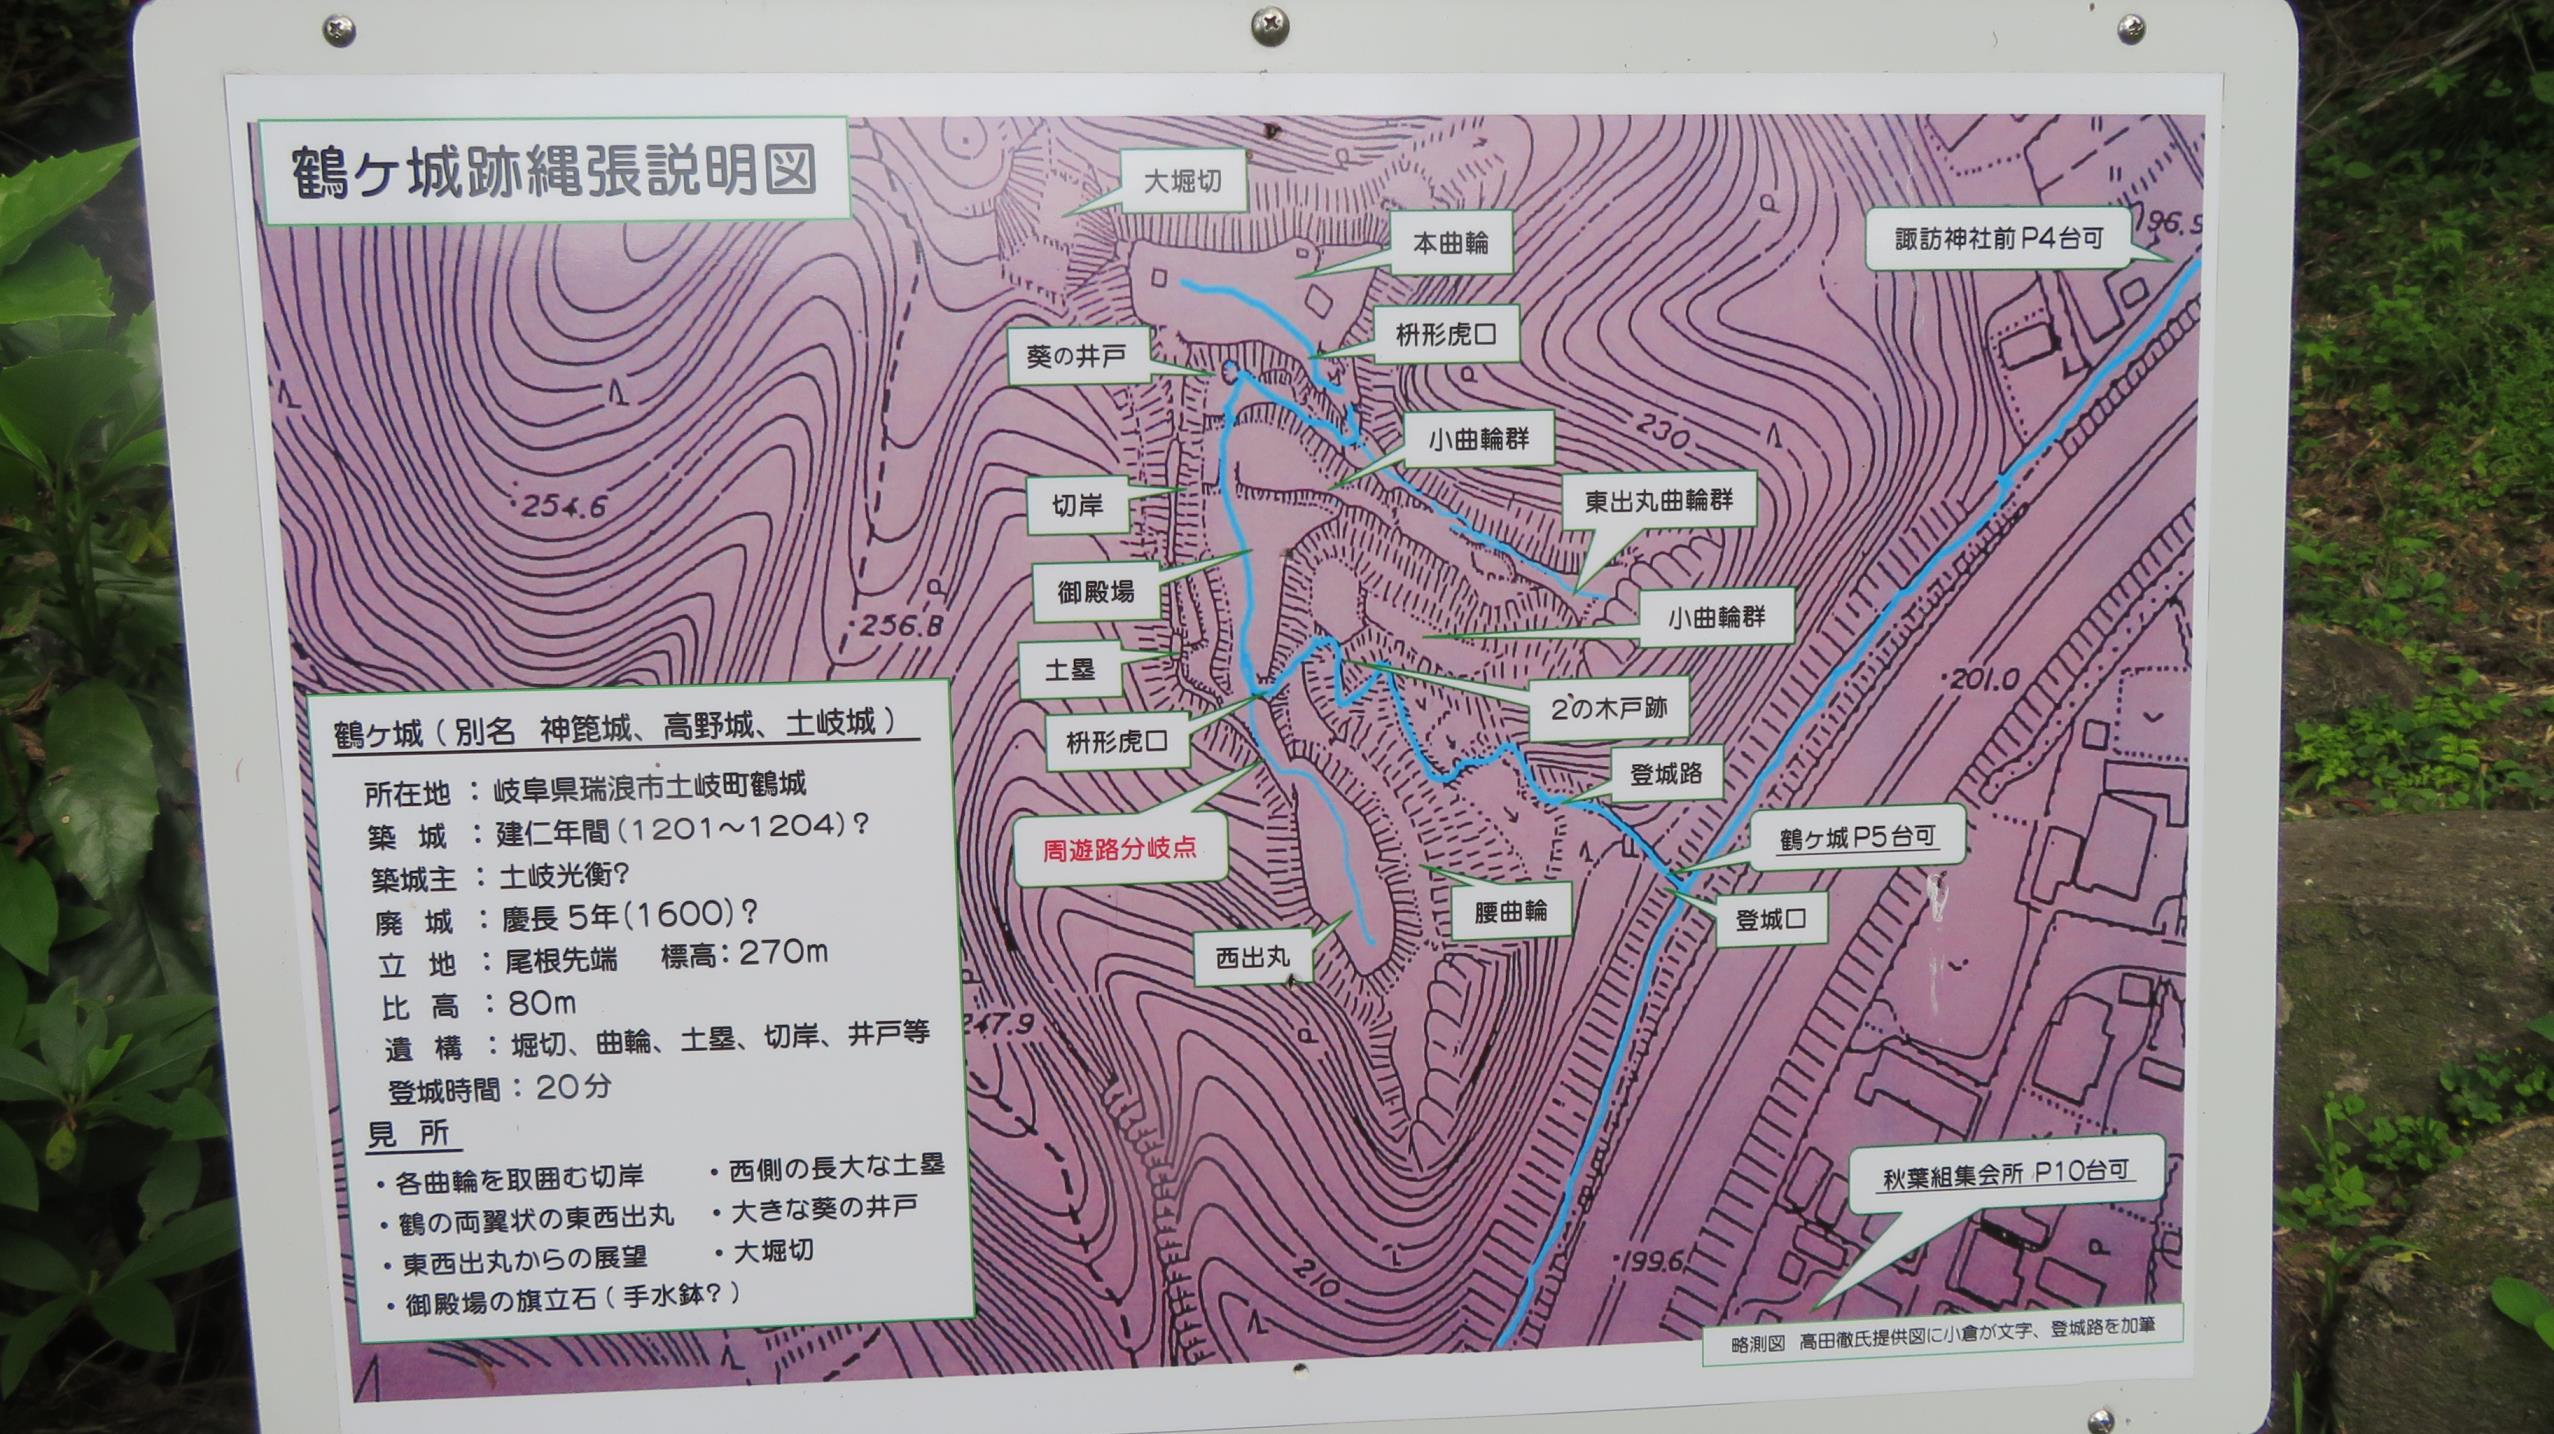 鶴ヶ城跡縄張説明図
大堀切
本曲輪
諏訪神社前P4台可
196.5
枡形虎口
葵の井戸
小曲輪群
230
東出丸曲輪群
切岸
254.6
御殿場
小曲輪群
256.8
土塁
201.0
2の木戸跡
枡形虎口
登城路
鶴ヶ城P5台可
周遊路分岐点
腰曲輪
登城口
西出丸
247.9
鶴ケ城(別名 神箆城、高野城、土岐城)
所在地:岐阜県瑞浪市土岐町鶴城
築 城:建仁年間(1201~1204)?
築城主:土岐光衡?
廃 城:慶長5年(1600)?
立 地:尾根先端 標高:270m
比 高:80m
遺 構:堀切、曲輪、土塁、切岸、井戸等
登城時間:20分
見 所
・各曲輪を取囲む切岸 ・西側の長大な土塁
・鶴の両翼状の東西出丸 ・大きな葵の井戸
・東西出丸からの展望 ・大堀切
・御殿場の旗立石(手水鉢?)
秋葉組集会所 P10台可
199.6
210
略測図 高田徹氏提供図に小倉が文字、登城路を加筆